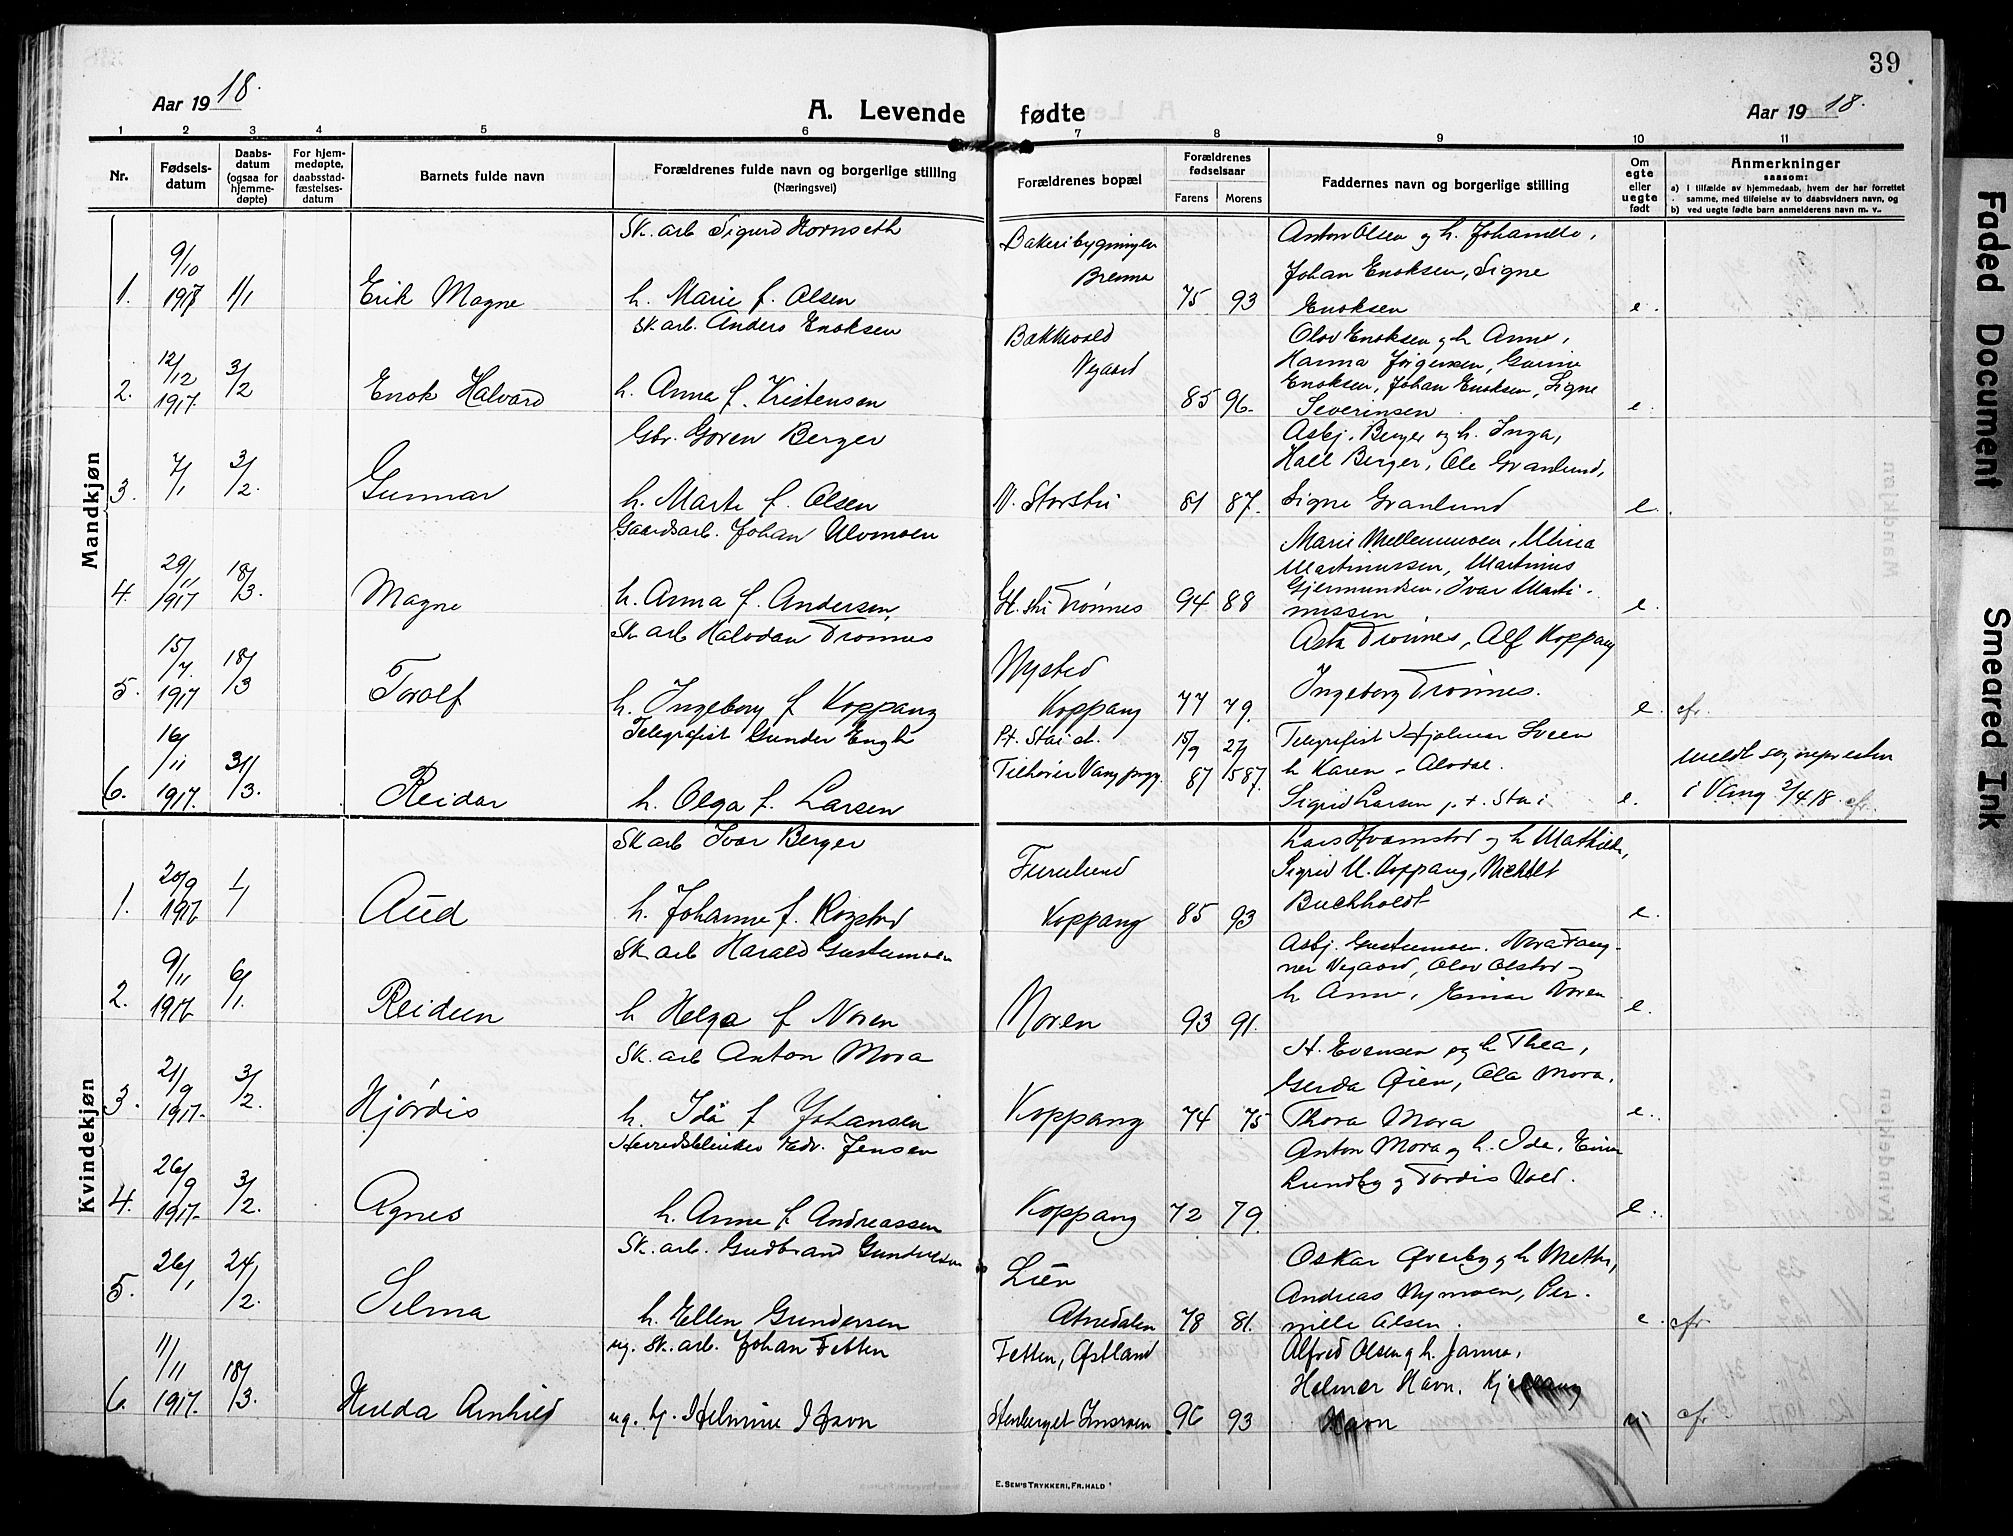 39
Aar 19 18.
A. Levende fødte
Aar 19 18.
1 2 3 4 5 6 7 8 9 10 11
Nr.
Fødsels-
datum
Daabs-
datum
(ogsaa for
hjemme-
døpte)
For hjem-
medøpte,
daabsstad-
fæstelses-
datum
Barnets fulde navn
Forældrenes fulde navn og borgerlige stilling
(Næringsvei)
Forældrenes bopæl
Forældrenes
fødselsaar
Farens Morens
Faddernes navn og borgerlige stilling
Om
egte
eller
uegte
født
Anmerkninger
saasom:
a) i tilfælde av hjemmedaab, hvem der har forrettet
samme, med tilføielse av to daabsvidners navn, og
b) ved uegte fødte barn anmelderens navn m. v.
Mandkjøn
Sk. arb Sigurd Hornseth
Bakeribygningen
Anton Olsen og h. Johanne,
9/10
Brenna
Johan Enoksen, Signe
1. 1917 1/1 Erik Magne h. Marie f. Olsen 75 93 Enoksen e.
Sk. arb. Anders Enoksen
Bakkevold
Olov Enoksen og h Anne,
12/12
3/2
Negaard
Hanna Jørgensen, Gurine
2. 1917 Enok Halvard h. Anna f. Kristensen 85 96. Enoksen, Johan Enoksen, Signe
Severinsen e.
Gbr. Goren Berger
Asbj. Berger og h. Inga,
Hall Berger, Ole Granlund,
3. 7/1 3/2. Gunnar h. Marte f. Olsen N. Storsti 81 87. Signe Granlund e.
Gaardsarb. Johan Ulvmoen
Marie Mellemmoen,
29/11
18/3.
Martinussen, Martinus
4. 1917 Magne h. Anna f. Andersen, Trønnes 94 88 Gjermundsen, Ivar Marti-
nussen e.
Sk arb Halvdan Trønnes
Asta Trønnes, Alf Koppang
15/7
18/3
Nysted
5. 1917 Torolf h. Ingeborg f Koppang Koppang 77 79. Ingeborg Trønnes. e. cfr.
Telegrafist Gunder Engh
Pt. Stai st. 15/9 27/1 Telegrafist Hjalmar Sveen
16/11
31/3.
Tilhører Vang prgj. 87 1587. h Karen - Alvdal.
meldt sognepresten
6. 1917. Reidar h. Olga f. Larsen Sigrid Larsen p. t. Stai e. i Vang 2/4 18. cfr.
Kvindekjøn
Sk arb Ivar Berger
Lars Hvamstad og h Mathilde,
20/9
1/1
Furulund
Sigrid M. Koppang,
1. 1917 Aud h. Johanne f. Rogstad Koppang 85 93 Buchholdt e.
Sk arb Harald Gustumoen
Asbj. Gustumoen. Nora Tang-
9/11
6/1.
ner Negaard, Olov Olstad og
2. 1917 Reidun h Helga f Noren Moren 93 91. h Anne, Einar Noren e.
Sk. arb Anton Mora
H. Evensen og h Thea,
21/9
3/2.
Gerda Øien, Ola Mora.
3. 1917. Hjørdis h. Ida f Johansen Koppang 74 75 Thora Mora e.
Herredskasserer Edv. Jensen
Anton Mora og h. Ida. Einar
26/9
3/2.
Lundby og Tordis Vold.
4. 1917. Agnes h. Anne f Andreassen Koppang 72 79. e.
Sk. arb. Gudbrand Gundersen
Oskar Øverby og h Methe,
26/1
24/2.
Lien
Andreas Nymoen, Per-
5. Selma h. Ellen Gundersen Atnedalen 78 81. nille Olsen. e. cfr.
ug. Sk. arb. Johan Fetten
Fetten, Østland
Alfred Olsen og h. Janna,
11/11
18/3.
Helmer Havn.
6. 1917. Hulda Arnhild ug. tj. Hjelmine Havn Stenberget Imsroen 96 93 Havn u cfr.
E. SEM'S TRYKKERI, FR.HALD
Faded Document
Smeared Ink